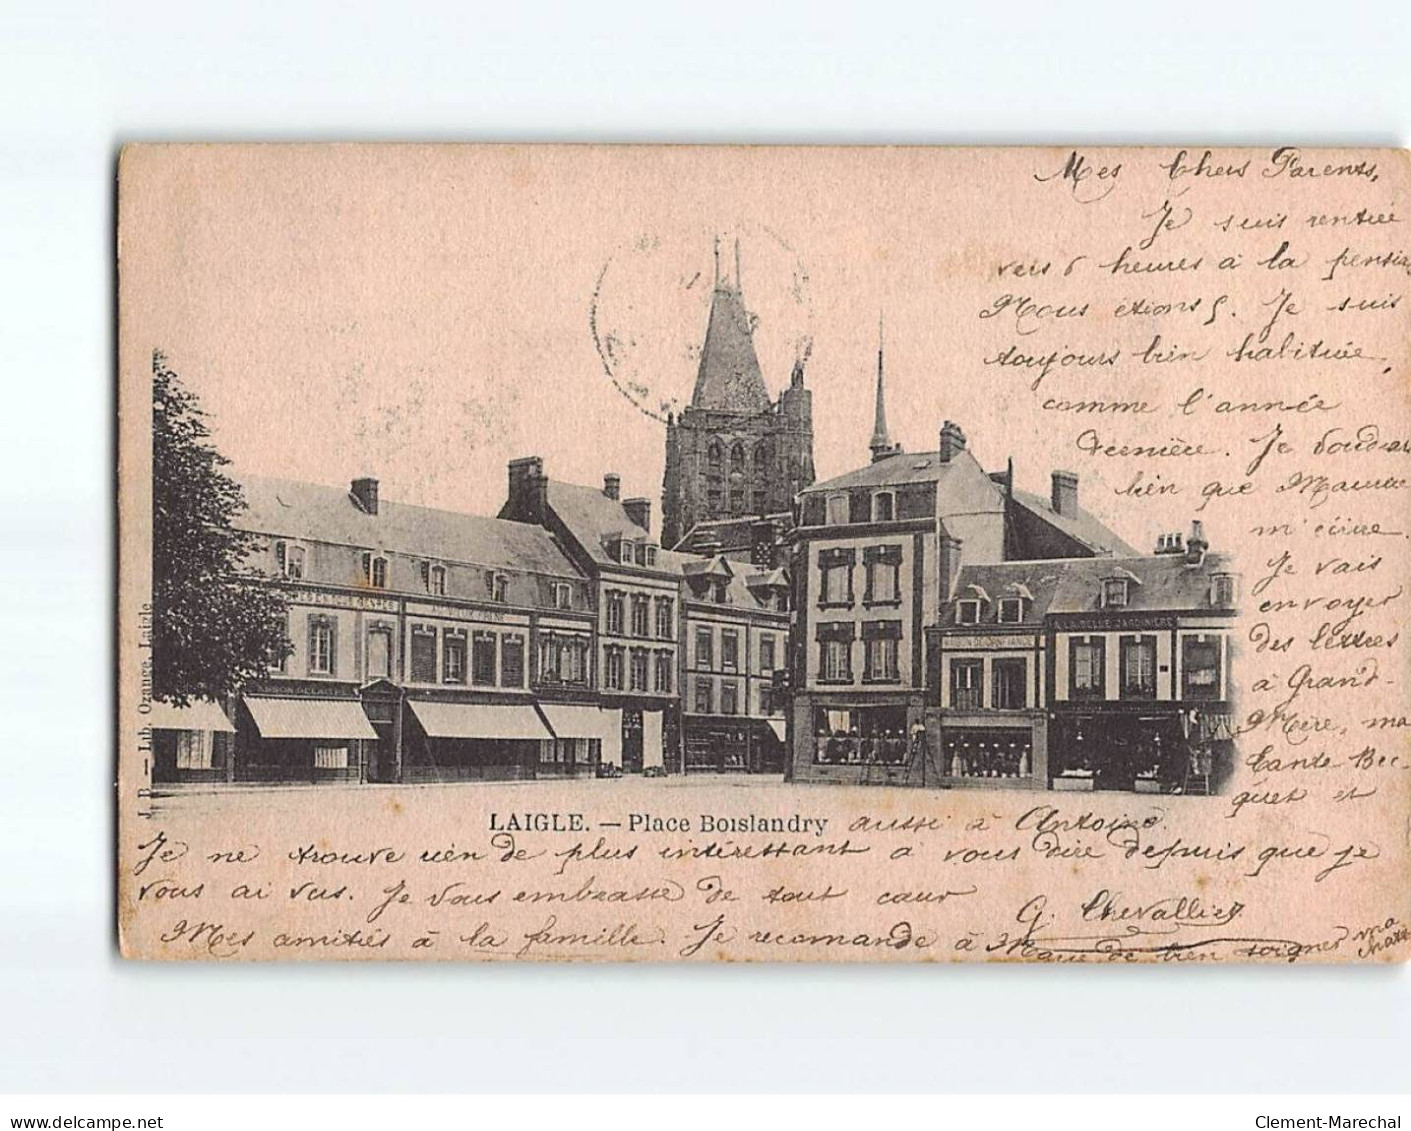 Mes Chers Parents,
Je suis rentrée
vers 6 heures à la pension
Nous étions 5. Je suis
toujours bien habituée,
comme l'année
dernière. Je voudrais
bien que Maman
m'écrive.
Je vais
envoyer
des lettres
à Grand-
Mère, ma
tante Bec-
quet et
LAIGLE. — Place Boislandry aussi à Antoine.
Je ne trouve rien de plus intéressant à vous dire depuis que je
vous ai vus. Je vous embrasse de tout cœur
G. Chevallier
Mes amitiés à la famille. Je recomande à Marie de bien soigner ma
J. B. — Lib. Orange, Laigle
A LA BELLE JARDINIERE
delcampe.net
Clement-Marechal